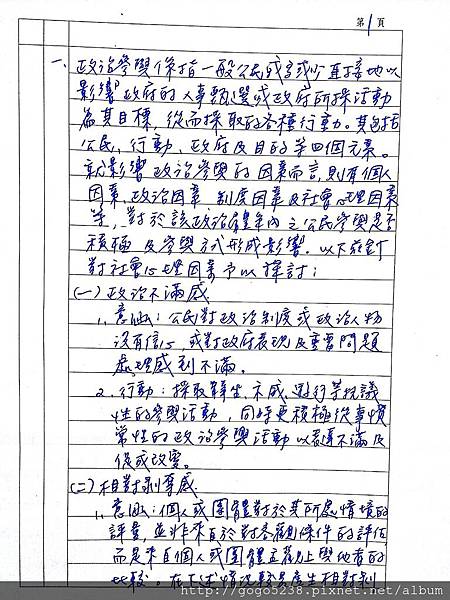 第1頁
一、政治參與係指一般公民或多或少直接地以
影響政府的人事甄選或政府所採活動
為其目標,從而採取的各種行動。其包括
公民、行動、政府及目的等四個元素。
就影響政治參與的因素而言,則有個人
因素、政治因素、制度因素及社會心理因素
等,對於該政治體系內之公民參與是否
積極及參與方式形成影響。以下茲針
對社會心理因素予以探討:
(一)政治不滿感
1、意涵:公民對政治制度或政治人物
沒有信心,或對政府表現及重要問題
處理感到不滿。
2、行動:採取罷工、示威、遊行等抗議
性的參與活動,同時更積極從事慣
常性的政治參與活動以表達不滿及
促成改變。
(二)相對剝奪感
1、意涵:個人或團體對於其所處情境的
評量,並非來自於對客觀條件的評估
而是來自個人或團體主觀上與他者的
比較。在下述情況較易產生相對剝
http://gogo5238.pixnet.net/album